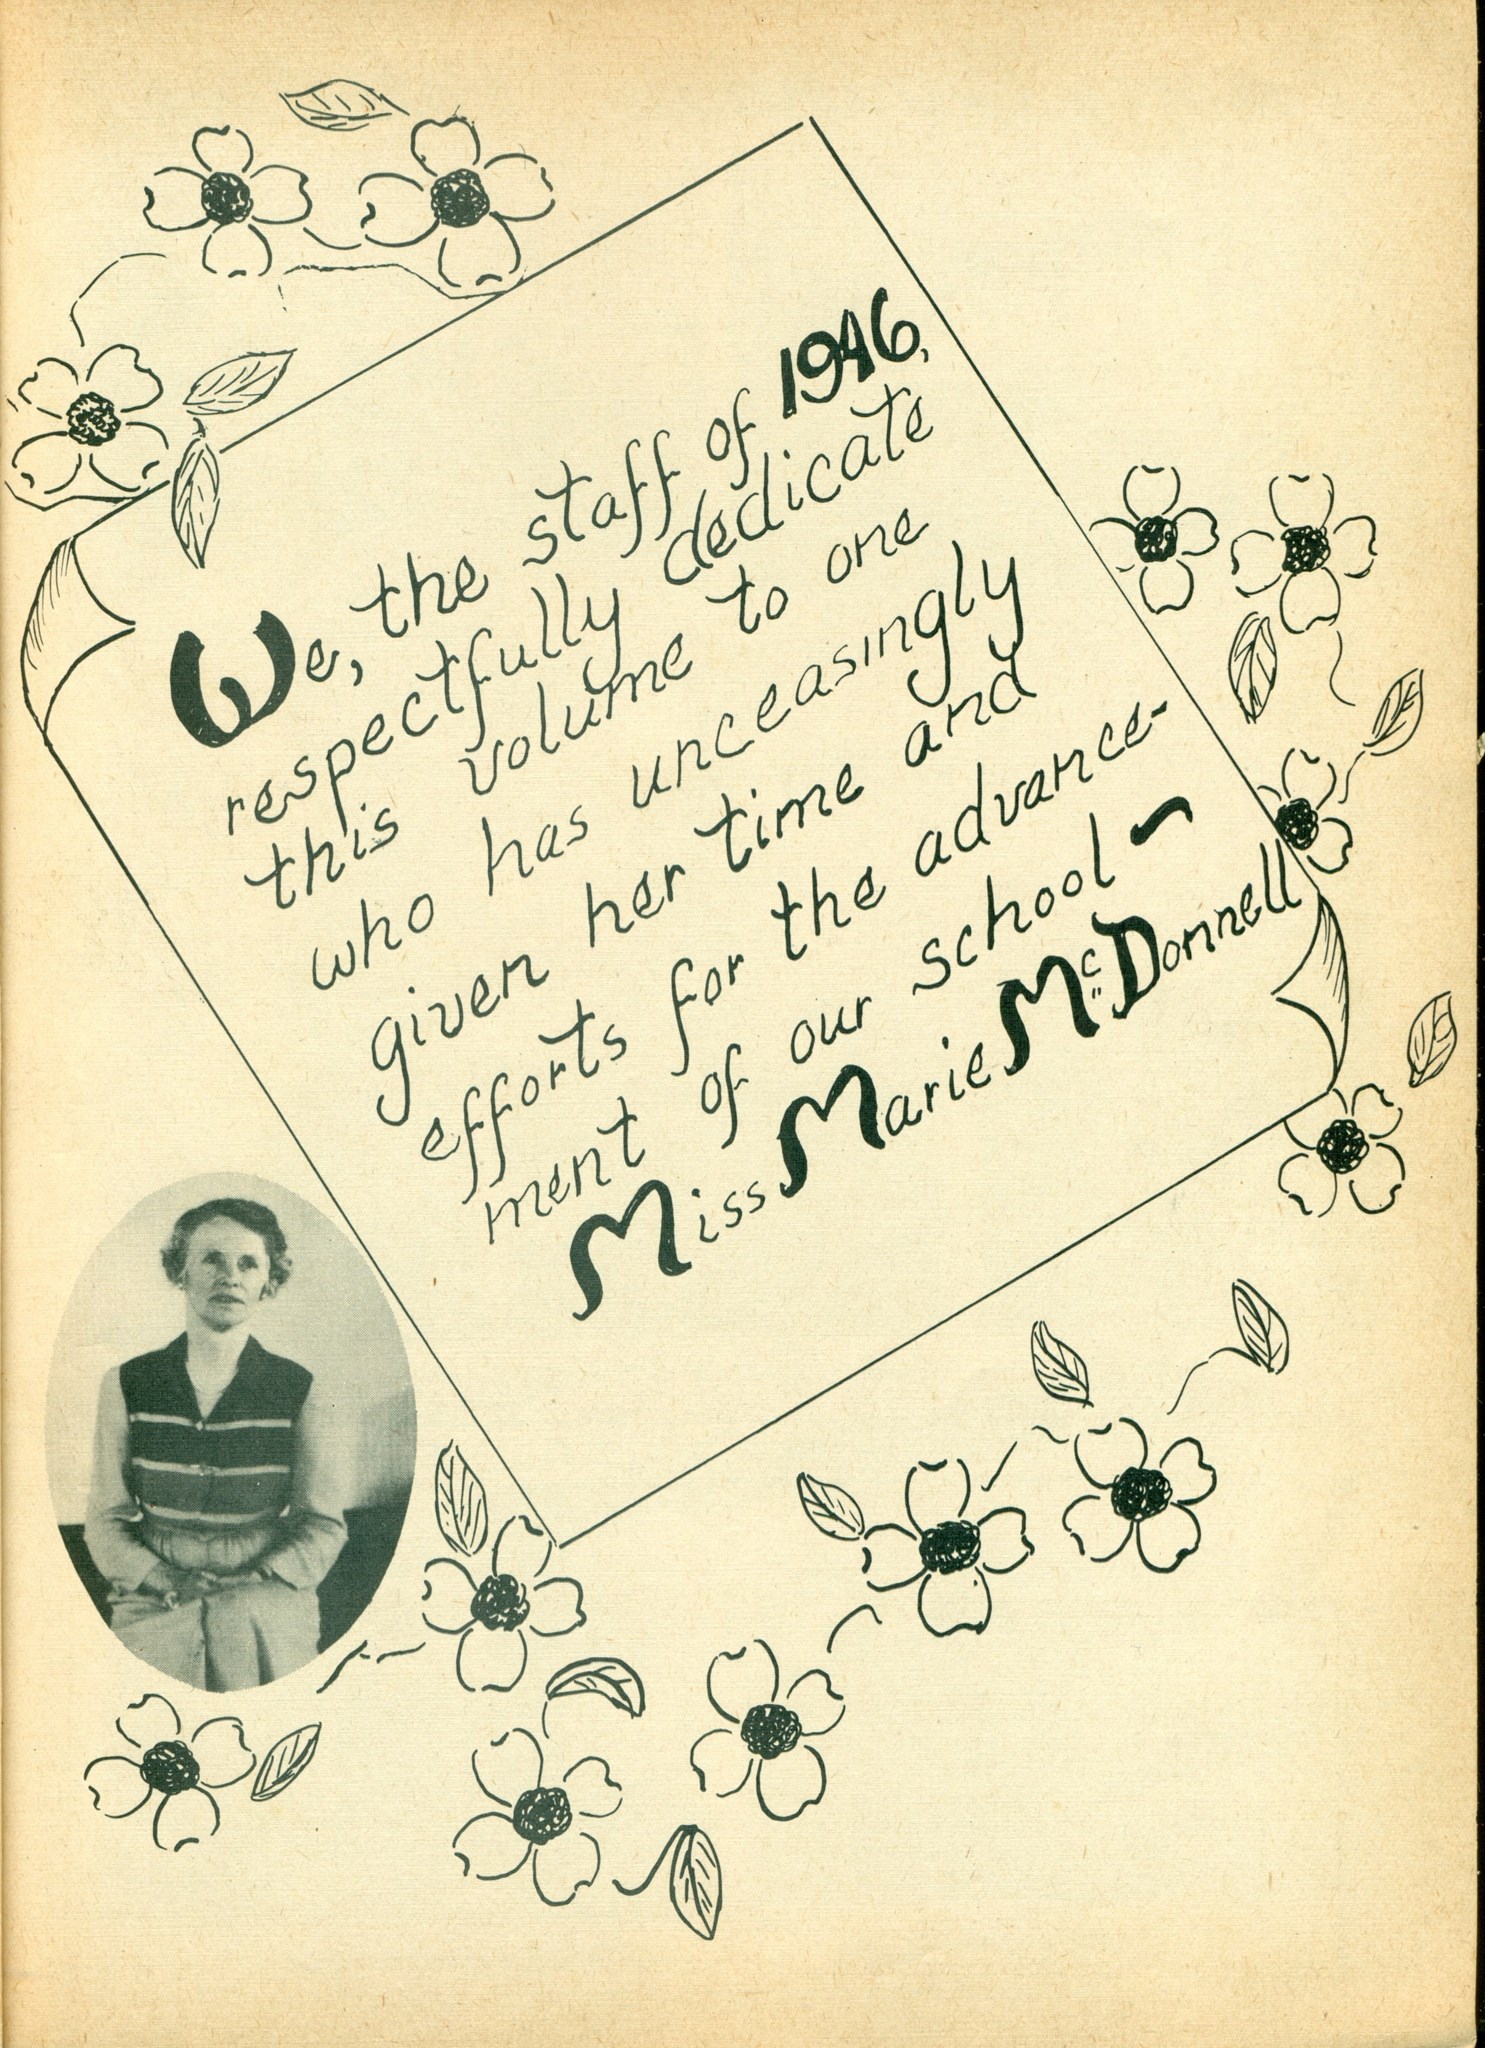 We, the staff of 1946,
respectfully dedicate
this volume to one
who has unceasingly
given her time and
efforts for the advance-
ment of our school ~
Miss Marie McDonnell